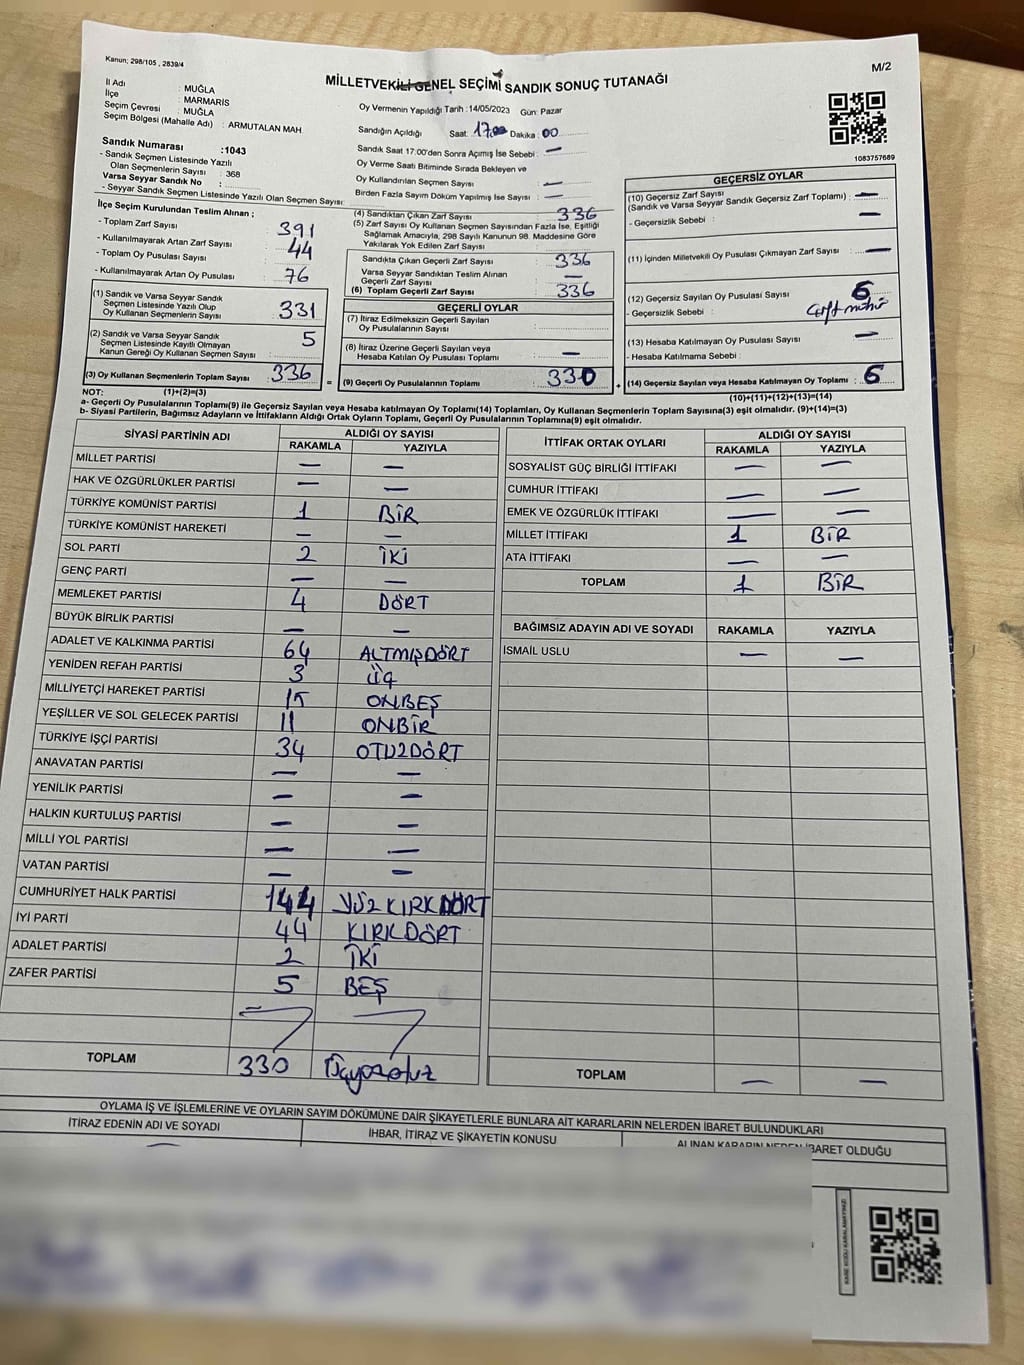 Kanun; 298/105 , 2839/4
M/2
MİLLETVEKİLİ GENEL SEÇİMİ SANDIK SONUÇ TUTANAĞI
İl Adı : MUĞLA
İlçe : MARMARİS
Seçim Çevresi : MUĞLA
Seçim Bölgesi (Mahalle Adı) : ARMUTALAN MAH.
Sandık Numarası :1043
- Sandık Seçmen Listesinde Yazılı
Olan Seçmenlerin Sayısı : 368
Varsa Seyyar Sandık No :
- Seyyar Sandık Seçmen Listesinde Yazılı Olan Seçmen Sayısı:
İlçe Seçim Kurulundan Teslim Alınan ;
- Toplam Zarf Sayısı : 391
- Kullanılmayarak Artan Zarf Sayısı : 44
- Toplam Oy Pusulası Sayısı
- Kullanılmayarak Artan Oy Pusulası : 76
(1) Sandık ve Varsa Seyyar Sandık
Seçmen Listesinde Yazılı Olup
Oy Kullanan Seçmenlerin Sayısı : 331
(2) Sandık ve Varsa Seyyar Sandık
Seçmen Listesinde Kayıtlı Olmayan
Kanun Gereği Oy Kullanan Seçmen Sayısı : 5
(3) Oy Kullanan Seçmenlerin Toplam Sayısı : 336
Oy Vermenin Yapıldığı Tarih :14/05/2023 Gün: Pazar
Sandığın Açıldığı Saat: 17.00 Dakika: 00
Sandık Saat 17:00'den Sonra Açımış İse Sebebi : —
Oy Verme Saati Bitiminde Sırada Bekleyen ve
Oy Kullandırılan Seçmen Sayısı : —
Birden Fazla Sayım Döküm Yapılmış İse Sayısı : —
(4) Sandıktan Çıkan Zarf Sayısı : 336
(5) Zarf Sayısı Oy Kullanan Seçmen Sayısından Fazla İse, Eşitliği
Sağlamak Amacıyla, 298 Sayılı Kanunun 98. Maddesine Göre
Yakılarak Yok Edilen Zarf Sayısı :
Sandıkta Çıkan Geçerli Zarf Sayısı : 336
Varsa Seyyar Sandıktan Teslim Alınan
Geçerli Zarf Sayısı : —
(6) Toplam Geçerli Zarf Sayısı : 336
GEÇERLİ OYLAR
(7) İtiraz Edilmeksizin Geçerli Sayılan
Oy Pusulalarının Sayısı :
(8) İtiraz Üzerine Geçerli Sayılan veya
Hesaba Katılan Oy Pusulası Toplamı : —
= (9) Geçerli Oy Pusulalarının Toplamı : 330 +
GEÇERSİZ OYLAR
1083757689
(10) Geçersiz Zarf Sayısı
(Sandık ve Varsa Seyyar Sandık Geçersiz Zarf Toplamı) : —
- Geçersizlik Sebebi : —
(11) İçinden Milletvekili Oy Pusulası Çıkmayan Zarf Sayısı : —
(12) Geçersiz Sayılan Oy Pusulası Sayısı : 6
- Geçersizlik Sebebi : Çift mühür
(13) Hesaba Katılmayan Oy Pusulası Sayısı : —
- Hesaba Katılmama Sebebi :
(14) Geçersiz Sayılan veya Hesaba Katılmayan Oy Toplamı : 6
NOT: (1)+(2)=(3) (10)+(11)+(12)+(13)=(14)
a- Geçerli Oy Pusulalarının Toplamı(9) ile Geçersiz Sayılan veya Hesaba katılmayan Oy Toplamı(14) Toplamları, Oy Kullanan Seçmenlerin Toplam Sayısına(3) eşit olmalıdır. (9)+(14)=(3)
b- Siyasi Partilerin, Bağımsız Adayların ve İttifakların Aldığı Ortak Oyların Toplamı, Geçerli Oy Pusulalarının Toplamına(9) eşit olmalıdır.
SİYASİ PARTİNİN ADI ALDIĞI OY SAYISI
RAKAMLA YAZIYLA
MİLLET PARTİSİ — —
HAK VE ÖZGÜRLÜKLER PARTİSİ — —
TÜRKİYE KOMÜNİST PARTİSİ 1 BİR
TÜRKİYE KOMÜNİST HAREKETİ — —
SOL PARTİ 2 İKİ
GENÇ PARTİ — —
MEMLEKET PARTİSİ 4 DÖRT
BÜYÜK BİRLİK PARTİSİ — —
ADALET VE KALKINMA PARTİSİ 64 ALTMIŞDÖRT
YENİDEN REFAH PARTİSİ 3 ÜÇ
MİLLİYETÇİ HAREKET PARTİSİ 15 ONBEŞ
YEŞİLLER VE SOL GELECEK PARTİSİ 11 ONBİR
TÜRKİYE İŞÇİ PARTİSİ 34 OTUZDÖRT
ANAVATAN PARTİSİ — —
YENİLİK PARTİSİ — —
HALKIN KURTULUŞ PARTİSİ — —
MİLLİ YOL PARTİSİ — —
VATAN PARTİSİ — —
CUMHURİYET HALK PARTİSİ 144 YÜZ KIRKDÖRT
İYİ PARTİ 44 KIRKDÖRT
ADALET PARTİSİ 2 İKİ
ZAFER PARTİSİ 5 BEŞ
TOPLAM 330 Üçyüzotuz
İTTİFAK ORTAK OYLARI ALDIĞI OY SAYISI
RAKAMLA YAZIYLA
SOSYALİST GÜÇ BİRLİĞİ İTTİFAKI — —
CUMHUR İTTİFAKI — —
EMEK VE ÖZGÜRLÜK İTTİFAKI — —
MİLLET İTTİFAKI 1 BİR
ATA İTTİFAKI — —
TOPLAM 1 BİR
BAĞIMSIZ ADAYIN ADI VE SOYADI RAKAMLA YAZIYLA
İSMAİL USLU — —
TOPLAM — —
OYLAMA İŞ VE İŞLEMLERİNE VE OYLARIN SAYIM DÖKÜMÜNE DAİR ŞİKAYETLERLE BUNLARA AİT KARARLARIN NELERDEN İBARET BULUNDUKLARI
İTİRAZ EDENİN ADI VE SOYADI İHBAR, İTİRAZ VE ŞİKAYETİN KONUSU ALINAN KARARIN NEDEN İBARET OLDUĞU
KARE KODU KARALAMAYINIZ!